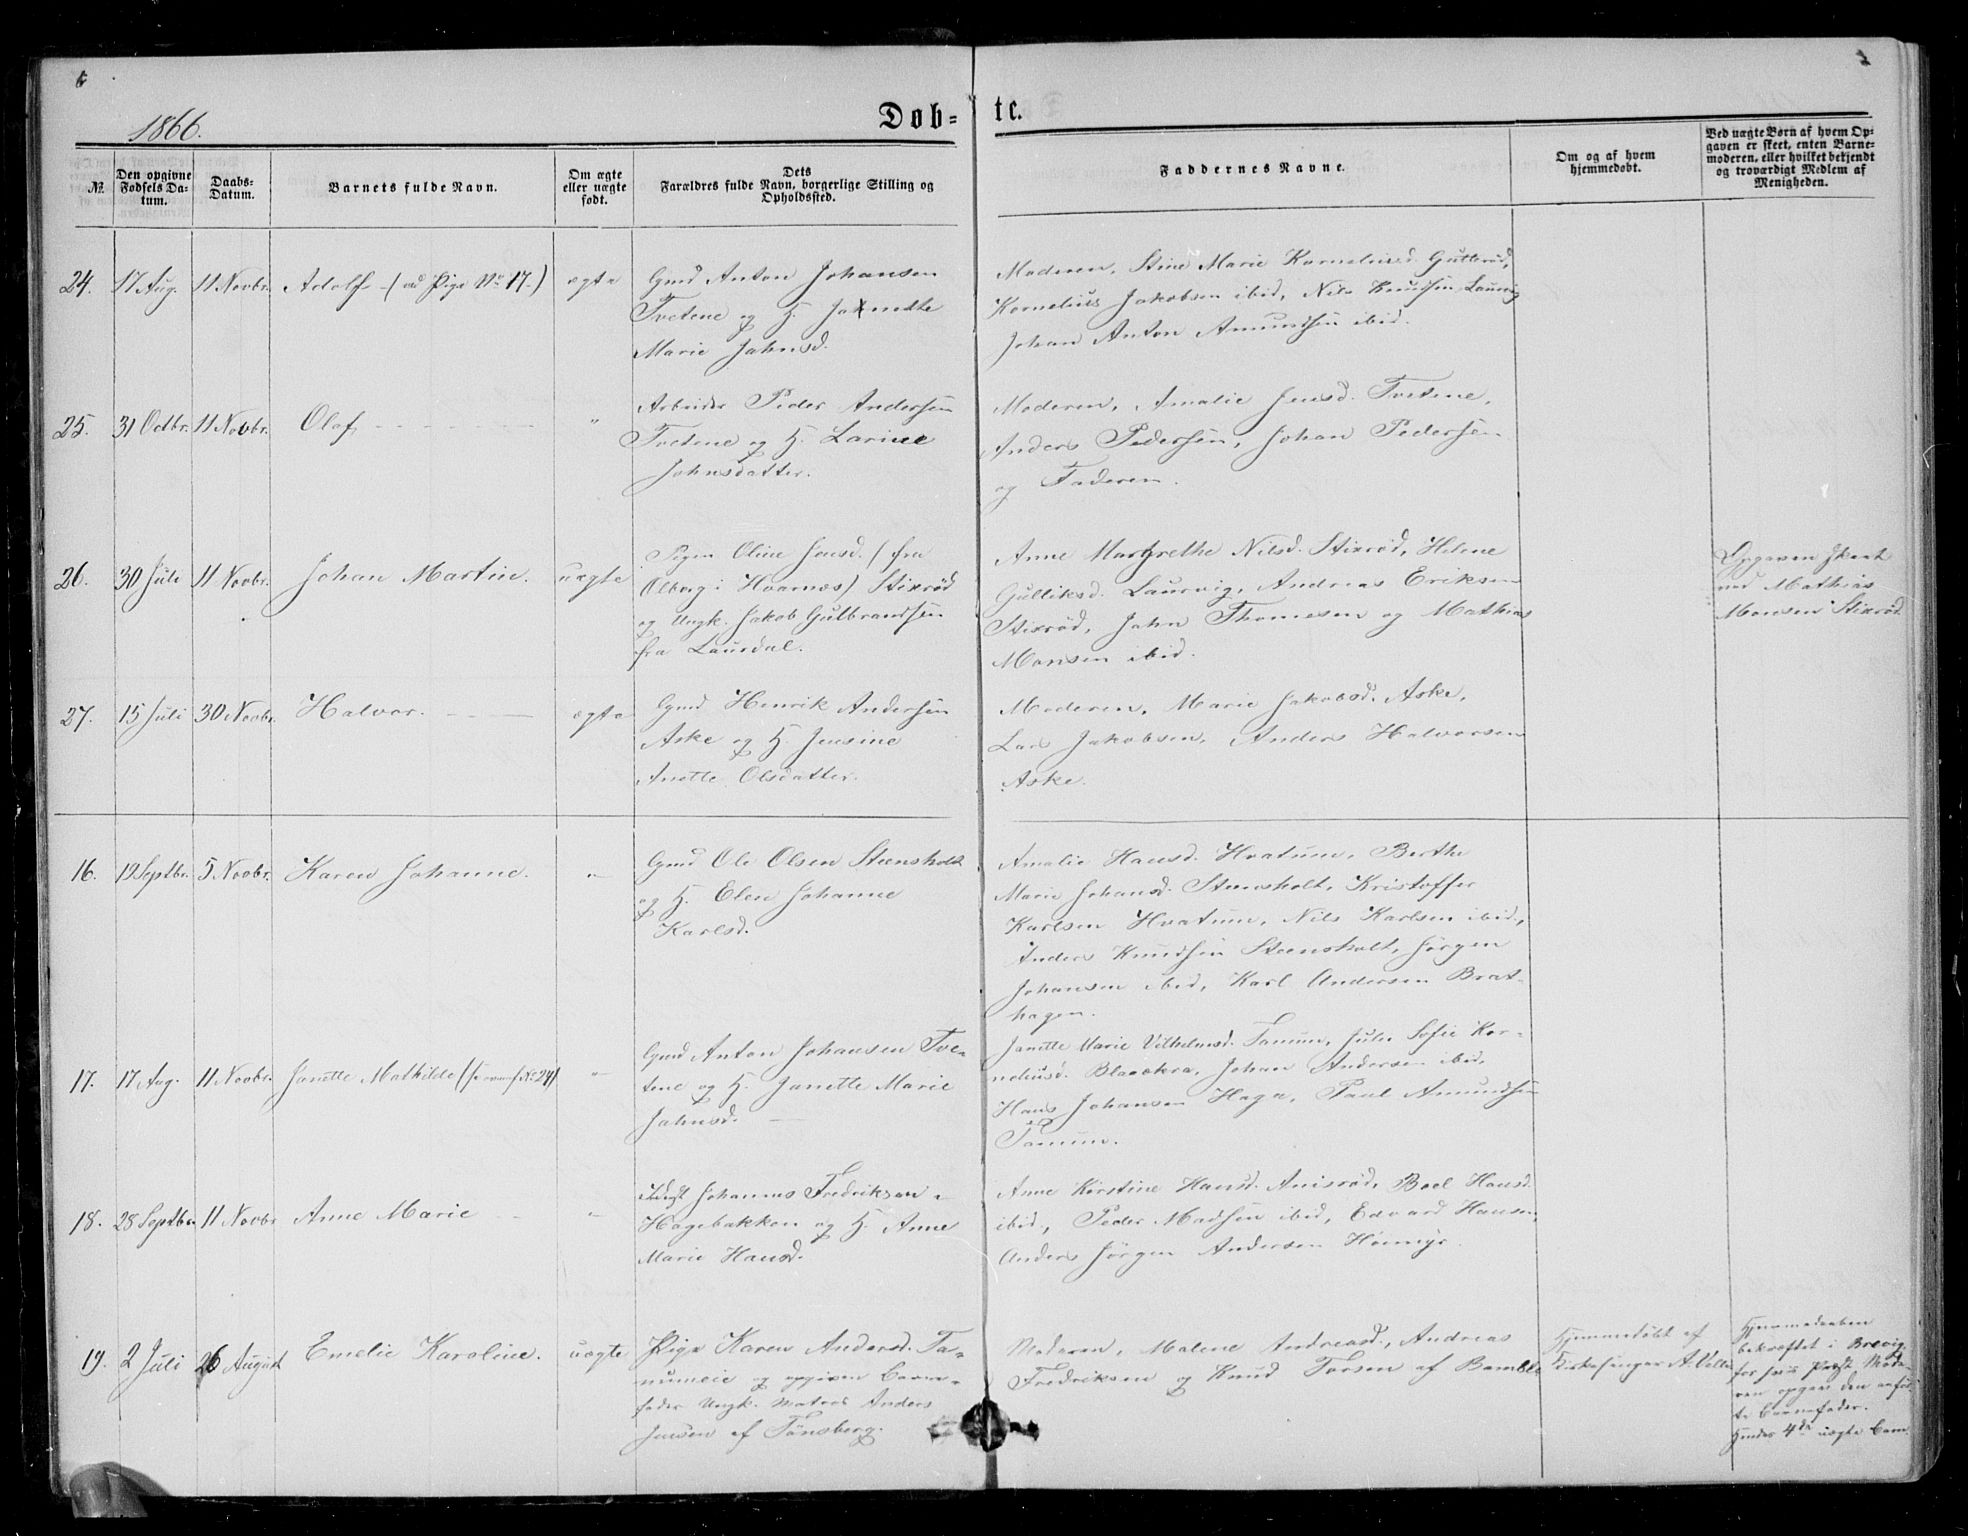 6
1866.
Døb=
te.
№.
Den opgivne Fødsels Da-
tum.
Daabs-
Datum.
Barnets fulde Navn.
Om ægte
eller uægte
født.
Dets
Forældres fulde Navn, borgerlige Stilling og
Opholdssted.
Faddernes Navne.
Om og af hvem
hjemmedøbt.
Ved uægte Børn af hvem Op-
gaven er skeet, enten Barne-
moderen, eller hvilket bekjendt
og troværdigt Medlem af
Menigheden.
24. 17 Aug. 11 Novbr. Adolf - (cnf Pige No 17.) ægte
Gmd Anton Johansen
Tvetene og H. Janette
Marie Jahnsd.
Moderen, Stine Marie Korneliusd. Gutterød,
Kornelius Jakobsen ibid, Nils Knudsen Laurvig
Johan Anton Amundsen ibid.
25. 31 Octbr. 11 Novbr. Olaf - "
Arbeider Peder Andersen
Tvetene og H. Larine
Johnsdatter.
Moderen, Amalie Jensd. Tvetene,
Anders Pedersen, Johan Pedersen
og Faderen.
26. 30 Juli 11 Novbr. Johan Martin. uægte
Pigen Oline Jensd. (fra
Olberg i Hvarnes) Stixrød
og Ungk. Jakob Gulbrandsen
fra Laurdal.
Anne Margrethe Nilsd. Stixrød, Helene
Gulliksd. Laurvig, Andreas Eriksen
Stixrød, Jahn Thomesen og Mathias
Monsen ibid.
Opgaven skeet
ved Mathias
Monsen Stixrød
27. 15 Juli 30 Novbr. Halvor. - ægte
Gmd Henrik Andersen
Aske og H. Jensine
Anette Olsdatter.
Moderen, Marie Jakobsd. Aske,
Lars Jakobsen, Anders Halvorsen
Aske.
16. 19 Septbr. 5 Novbr. Karen Johanne. "
Gmd Ole Olsen Steensholt
og H. Elen Johanne
Karlsd.
Amalie Hansd. Hvatum, Berthe
Marie Johansd. Steensholt, Kristoffer
Karlsen Hvatum, Nils Karlsen ibid,
Anders Knudsen Steensholt, Jørgen
Johansen ibid, Karl Andersen Brat-
hagen.
17. 17 Aug. 11 Novbr. Janette Mathilde (se ovenf No 24) "
Gmd Anton Johansen Tve-
tene og H. Janette Marie
Jahnsd. -
Janette Marie Vilhelmsd. Tanum, Julie Sofie Kor-
neliusd. Blaaokra, Johan Andersen ibid,
Hans Johansen Haga, Paul Amundsen
Tanum.
18. 28 Septbr. 11 Novbr Anne Marie - "
Johannes Fredriksen
Hagebakken og H. Anne
Marie Hansd.
Anne Kirstine Hansd. Anisrød, Boel Hansd.
ibid, Peder Madsen ibid, Edvard Hansen,
Anders Jørgen Andersen
19. 2 Juli 26 August Emelie Karoline. uægte
Pige Karen Andersd. Ta-
numeie og opgiven Barne-
fader Ungk. Matros Anders
Jensen af Tønsberg.
Moderen, Malene Andreasd., Andreas
Fredriksen og Knud Torsen af Bamble
Hjemmedøbt af
Kirkesanger A.
Hjemmedaaben
bekræftet i Brevig,
for Præst Mode-
ren opgav den anfør-
te Barnefader.
Hendes 4de uægte Barn.